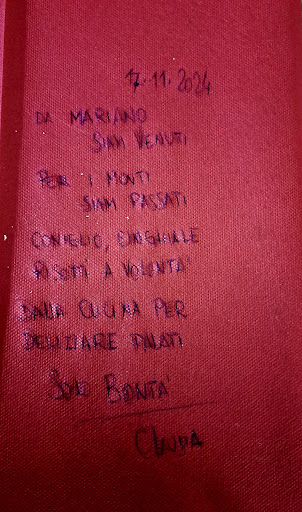 17.11.2024
DA MARIANO
SIAM VENUTI
PER I MONTI
SIAM PASSATI
CONIGLIO, CINGHIALE
RISOTTI A VOLONTA'
DALLA CUCINA PER
DELIZIARE PALATI
SOLO BONTA'